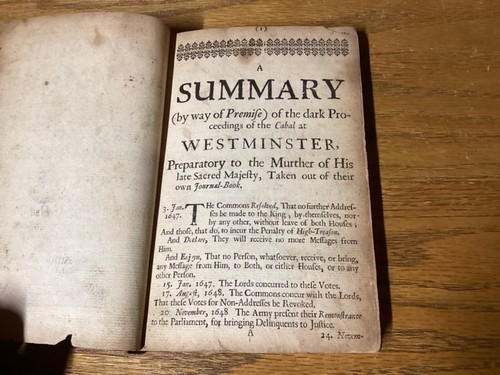 (1)
A
SUMMARY
(by way of Premiſe) of the dark Pro-
ceedings of the Cabal at
WESTMINSTER,
Preparatory to the Murther of His
late Sacred Majeſty, Taken out of their
own Journal-Book.
3. Jan. THe Commons Reſolved, That no further Addreſ-
1647. ſes be made to the King, by themſelves, nor
by any other, without leave of both Houſes;
And thoſe, that do, to incur the Penalty of High-Treaſon.
And Declare, They will receive no more Meſſages from
Him.
And Enjoyn, That no Perſon, whatſoever, receive, or bring,
any Meſſage from Him, to Both, or either Houſes, or to any
other Perſon.
15. Jan. 1647. The Lords concurred to theſe Votes.
17. Auguſt, 1648. The Commons concur with the Lords,
That theſe Votes for Non-Addreſſes be Revoked.
20 November, 1648 The Army preſent their Remonſtrance
to the Parliament, for bringing Delinquents to Juſtice.
A 24. Novem-